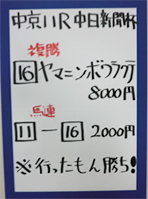 中京11R 中日新聞杯
複勝
16 ヤマニンボワラクテ
8000円
馬連
11 ― 16 2000円
※行ったもん勝ち!